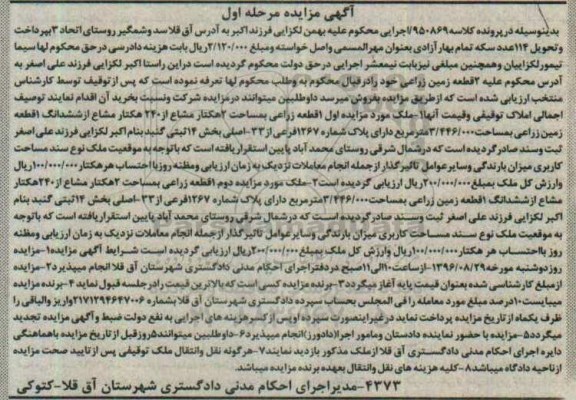 آگهی مزایده مرحله اول
بدینوسیله در پرونده کلاسه ۹۵۰۸۶۹/اجرایی محکوم علیه بهمن لکزایی فرزند اکبر به آدرس آق قلا سد وشمگیر روستای اتحاد ۳ بپرداخت
و تحویل ۱۱۴ عدد سکه تمام بهار آزادی بعنوان مهرالمسمی واصل خواسته و مبلغ ۲/۱۲۰/۰۰۰ ریال بابت هزینه دادرسی در حق محکوم لها سیما
تیمور لکزاییان و همچنین مبلغی نیز بابت نیمعشر اجرایی در حق دولت محکوم گردیده است در این راستا اکبر لکزایی فرزند علی اصغر به
آدرس محکوم علیه ۲ قطعه زمین زراعی خود را در قبال محکوم به وطلب محکوم لها تعرفه نموده است که پس از توقیف توسط کارشناس
منتخب ارزیابی شده است که از طریق مزایده بفروش میرسد داوطلبین میتوانند در مزایده شرکت ونسبت بخرید آن اقدام نمایند توصیف
اجمالی املاک توقیفی وقیمت آنها ۱- ملک مورد مزایده اول ۱ قطعه زراعی بمساحت ۲ هکتار مشاع از ۲۴۰ هکتار مشاع از ششدانگ ۱ قطعه
زمین زراعی بمساحت ۳/۴۴۶/۰۰۰ مترمربع دارای پلاک شماره ۱۲۶۷ فرعی از ۳۳-اصلی بخش ۱۴ ثبتی گنبد بنام اکبر لکزایی فرزند علی اصغر
ثبت وسند صادر گردیده است که در شمال شرقی روستای محمد آباد پایین استقرار یافته است که با توجه به موقعیت ملک نوع سند مساحت
کاربری میزان بارندگی وسایر عوامل تاثیر گذار از جمله انجام معاملات نزدیک به زمان ارزیابی ومظنه روز با احتساب هر هکتار ۱۰۰/۰۰۰/۰۰۰ ریال
وارزش کل ملک بمبلغ ۲۰۰/۰۰۰/۰۰۰ ریال ارزیابی گردیده است ۲-ملک مورد مزایده دوم ۱ قطعه زراعی بمساحت ۲ هکتار مشاع از ۲۴۰ هکتار
مشاع از ششدانگ ۱ قطعه زمین زراعی بمساحت ۳/۴۴۶/۰۰۰ مترمربع دارای پلاک شماره ۱۲۶۷ فرعی از ۳۳-اصلی بخش ۱۴ ثبتی گنبد بنام
اکبر لکزایی فرزند علی اصغر ثبت وسند صادر گردیده است که در شمال شرقی روستای محمد آباد پایین استقرار یافته است که با توجه
به موقعیت ملک نوع سند مساحت کاربری میزان بارندگی وسایر عوامل تاثیر گذار از جمله انجام معاملات نزدیک به زمان ارزیابی ومظنه
روز با احتساب هر هکتار ۱۰۰/۰۰۰/۰۰۰ ریال وارزش کل ملک بمبلغ ۲۰۰/۰۰۰/۰۰۰ ریال ارزیابی گردیده است شرایط آگهی مزایده ۱-مزایده
روز دوشنبه مورخه ۱۳۹۶/۰۸/۲۹-از ساعت ۱۰ الی ۱۱ صبح در دفتر اجرای احکام مدنی دادگستری شهرستان آق قلا انجام میپذیرد ۲-مزایده
از مبلغ کارشناسی شده بعنوان قیمت پایه آغاز میگردد ۳-برنده مزایده کسی است که بالاترین قیمت را در جلسه قبول نماید ۴-برنده مزایده
میبایست ۱۰ درصد مبلغ مورد معامله را فی المجلس بحساب سپرده دادگستری شهرستان آق قلا بشماره ۲۱۷۱۲۹۴۶۴۷۰۰۶ واریز والباقی را
ظرف یکماه از تاریخ مزایده پرداخت نماید در غیر اینصورت سپرده او پس از کسر هزینه های اجرایی به نفع دولت ضبط و آگهی مزایده تجدید
میگردد ۵-مزایده با حضور نماینده دادستان ومامور اجرا(دادورز) انجام میپذیرد ۶-داوطلبین میتوانند ۵ روز قبل از تاریخ مزایده با هماهنگی
دایره اجرای احکام مدنی دادگستری آق قلا از ملک مذکور بازدید نمایند ۷-هرگونه نقل وانتقال ملک توقیفی پس از تایید صحت مزایده
از ناحیه دادگاه میباشد ۸-کلیه هزینه های نقل وانتقال بعهده برنده مزایده میباشد.
۴۳۷۳-مدیر اجرای احکام مدنی دادگستری شهرستان آق قلا-کتوکی